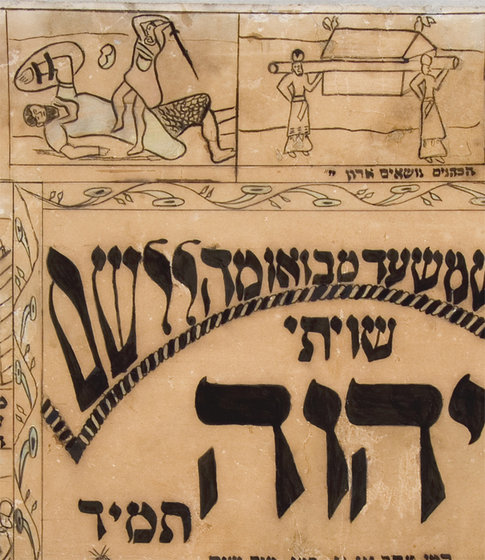 הכהנים נושאים ארון
שמש עד מבואו מהלל שם
שויתי
יהוה
תמיד